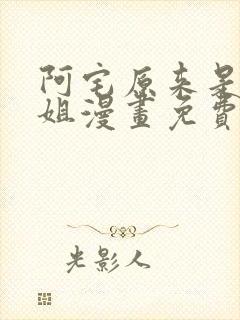 阿宅原来是
姐漫畫免費
光影人